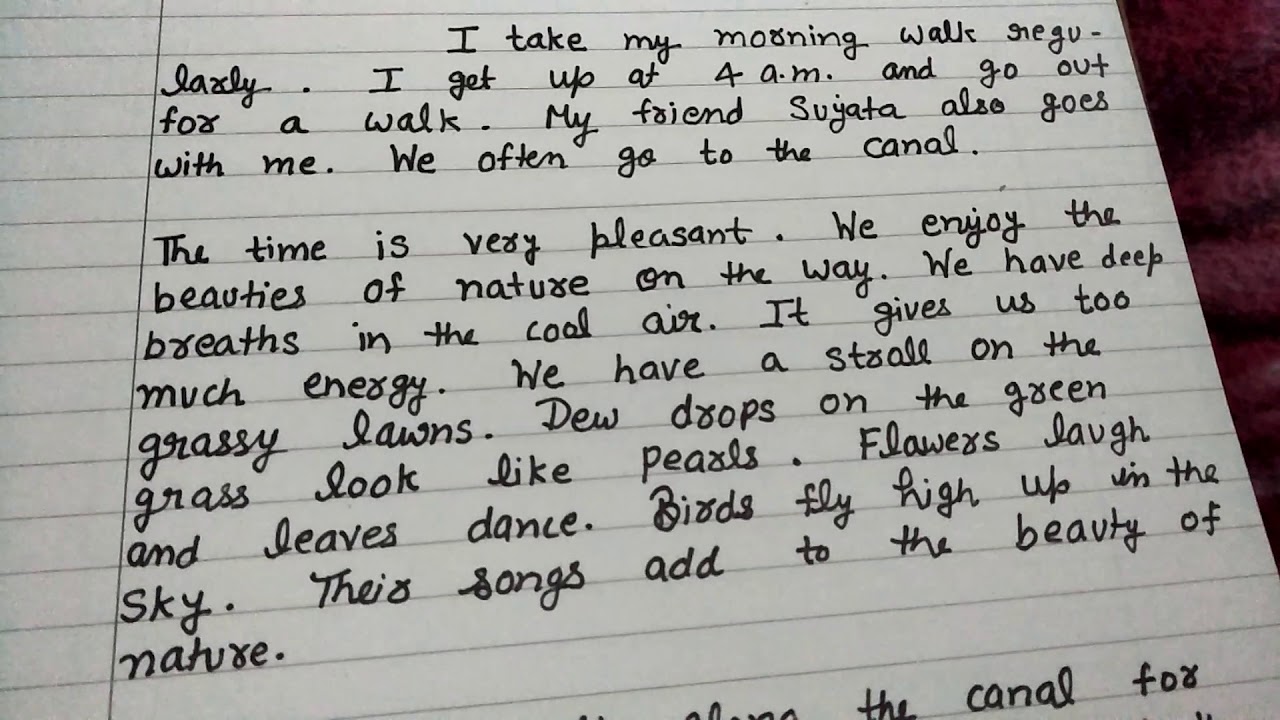 I take my morning walk regu-
larly. I get up at 4 a.m. and go out
for a walk. My friend Sujata also goes
with me. We often go to the canal.
The time is very pleasant. We enjoy the
beauties of nature on the way. We have deep
breaths in the cool air. It gives us too
much energy. We have a stroll on the
grassy lawns. Dew drops on the green
grass look like pearls. Flowers laugh
and leaves dance. Birds fly high up in the
sky. Their songs add to the beauty of
nature.
along the canal for